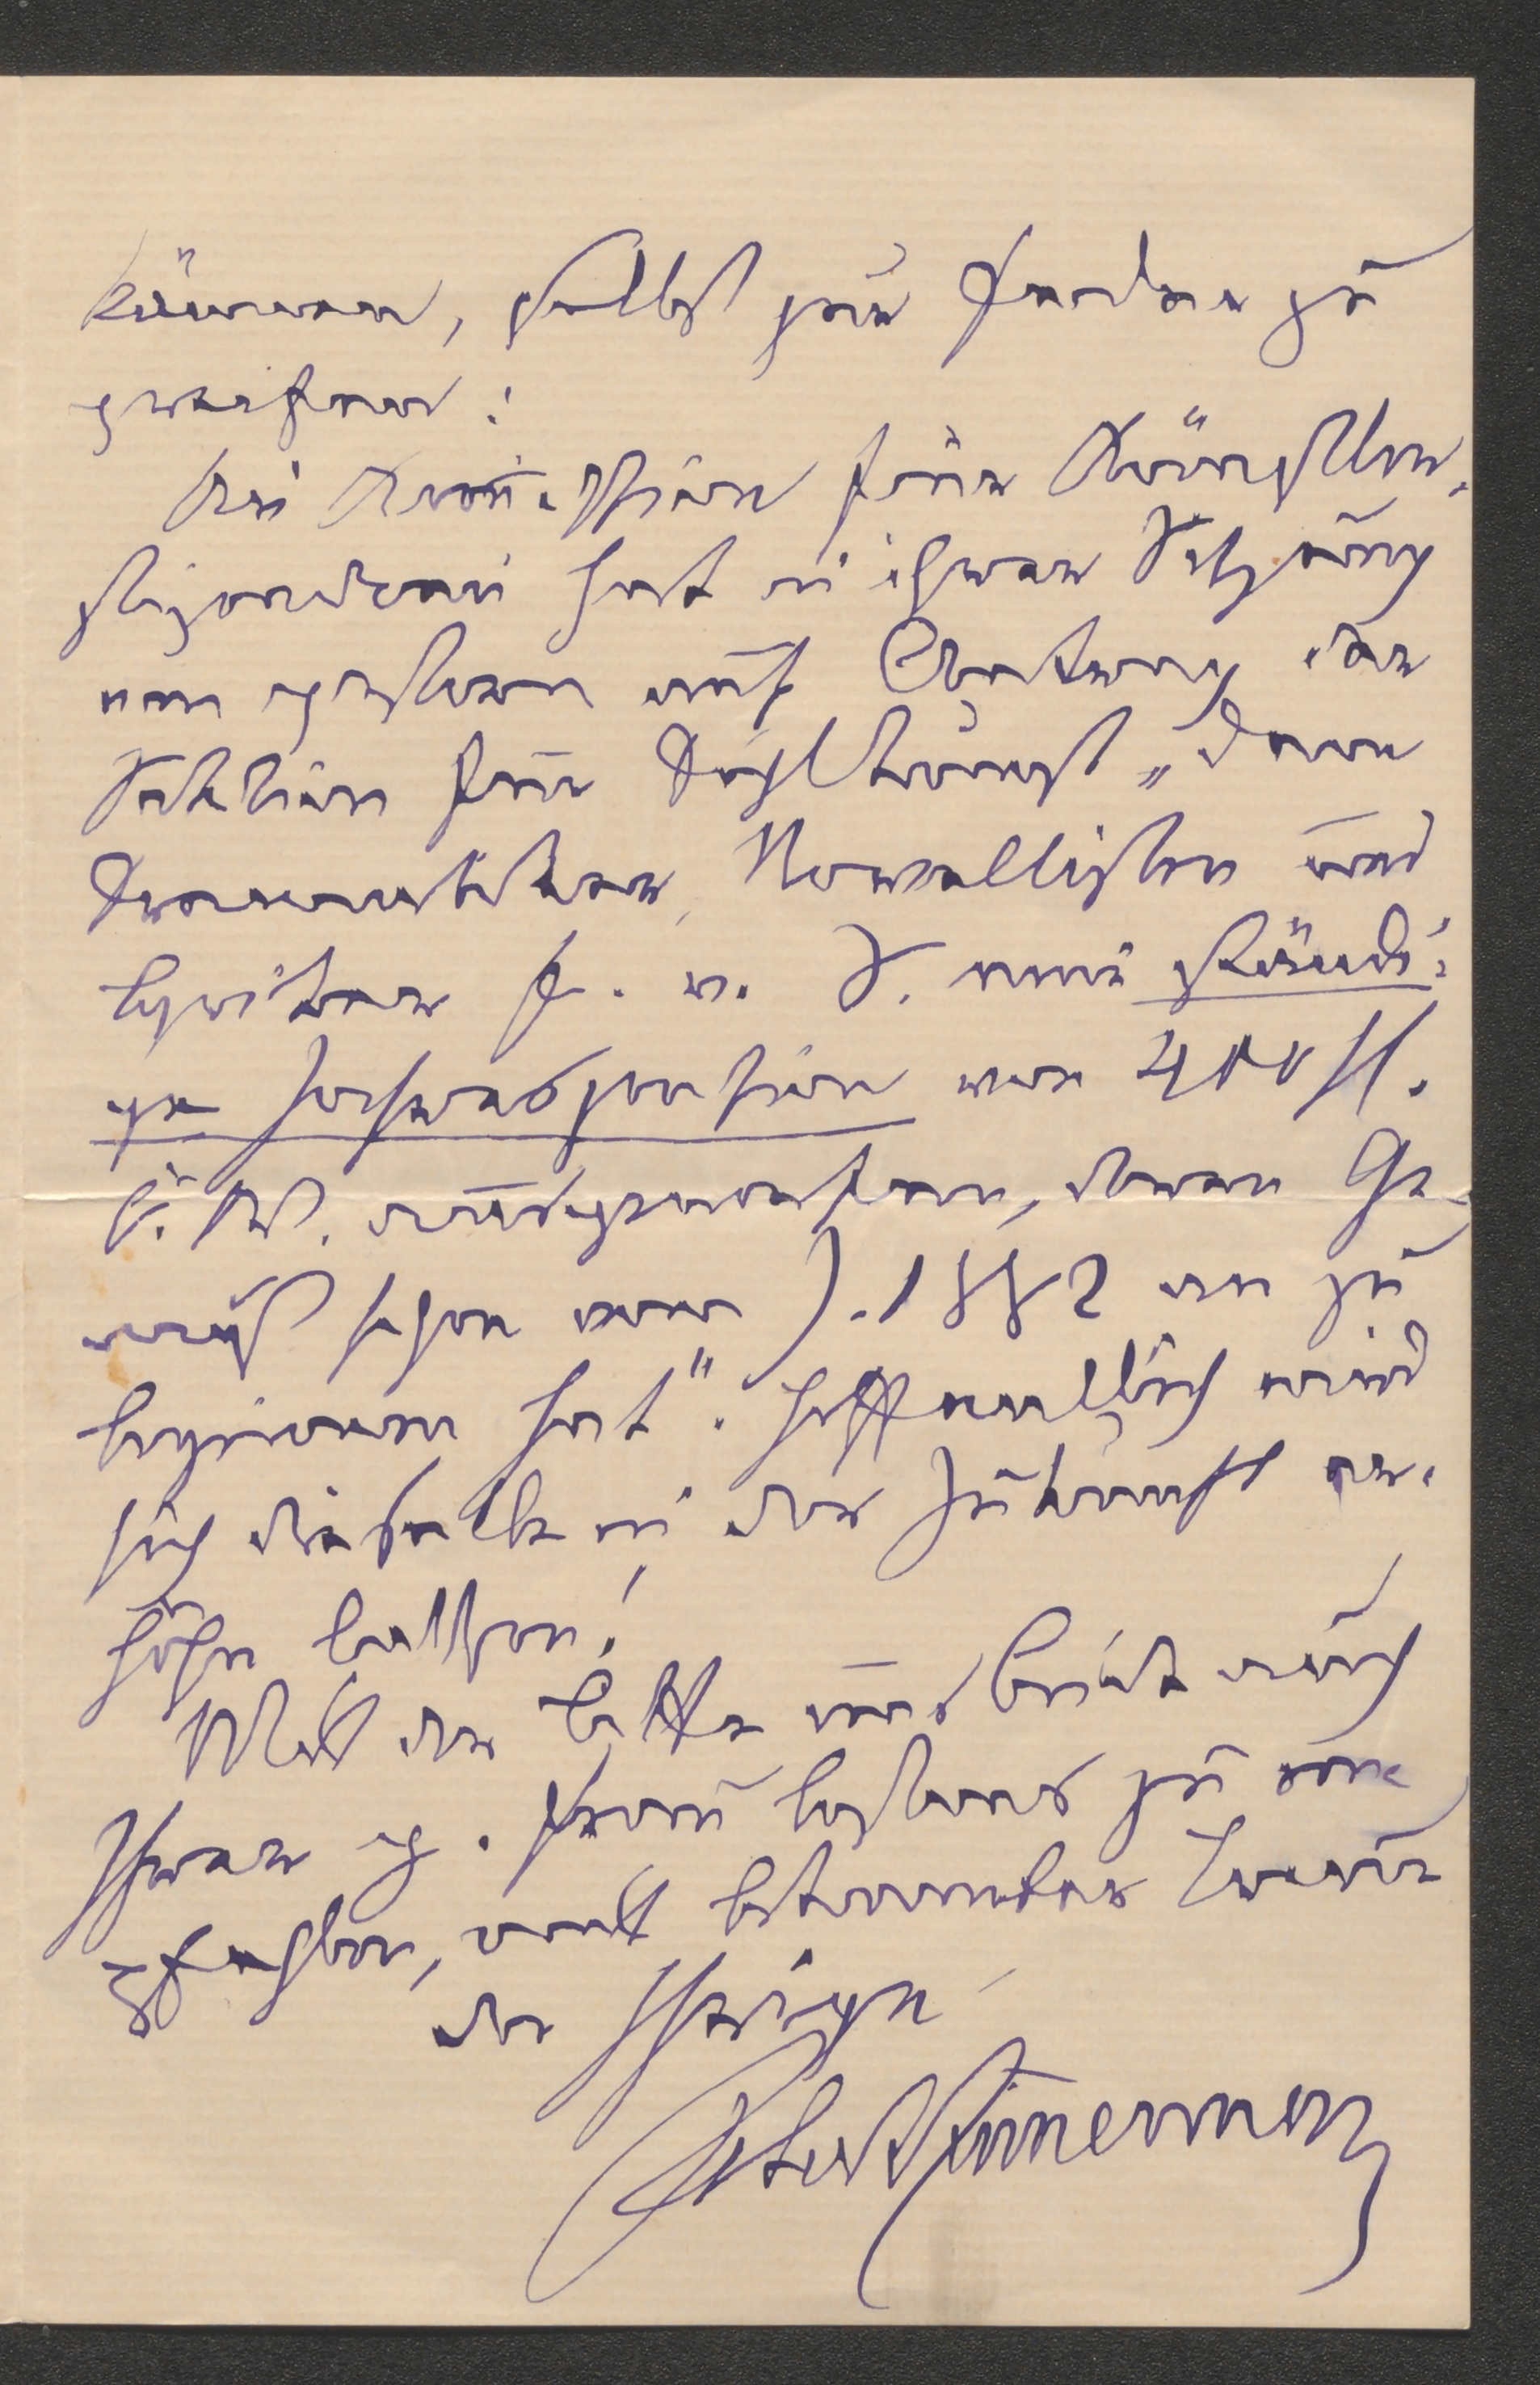 können, selbst zur Feder zu
greifen!
Die Kom̅ission für Künstler¬
stipendien hat in ihrer Sitzung
von gestern auf Antrag der
Sektion für Dichtkunst „dem
Dramatiker, Novellisten und
Lyriker F. v. S. eine ständi¬
ge Jahrespension von 400 fl.
ö. W. ausgeworfen, deren Ge¬
nuß schon vom J. 1882 an zu
beginnen hat“. Hoffentlich wird
sich dieselbe in der Zukunft er¬
höhen lassen!
Mit der Bitte uns beide auch
Ihrer g. Frau bestens zu em
pfehlen, mit bekannter Treue
der Ihrige
Robert Zimmermann